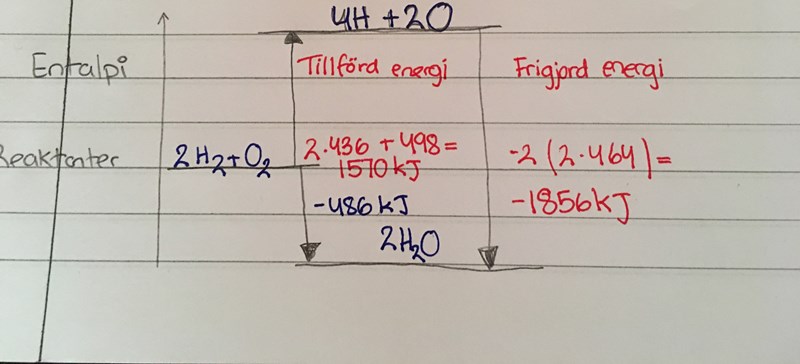 4H + 2O
Entalpi
Tillförd energi
Frigjord energi
Reaktanter
2H₂+O₂
2·436 + 498 =
1570 kJ
-2(2·464) =
-1856 kJ
-486 kJ
2H₂O